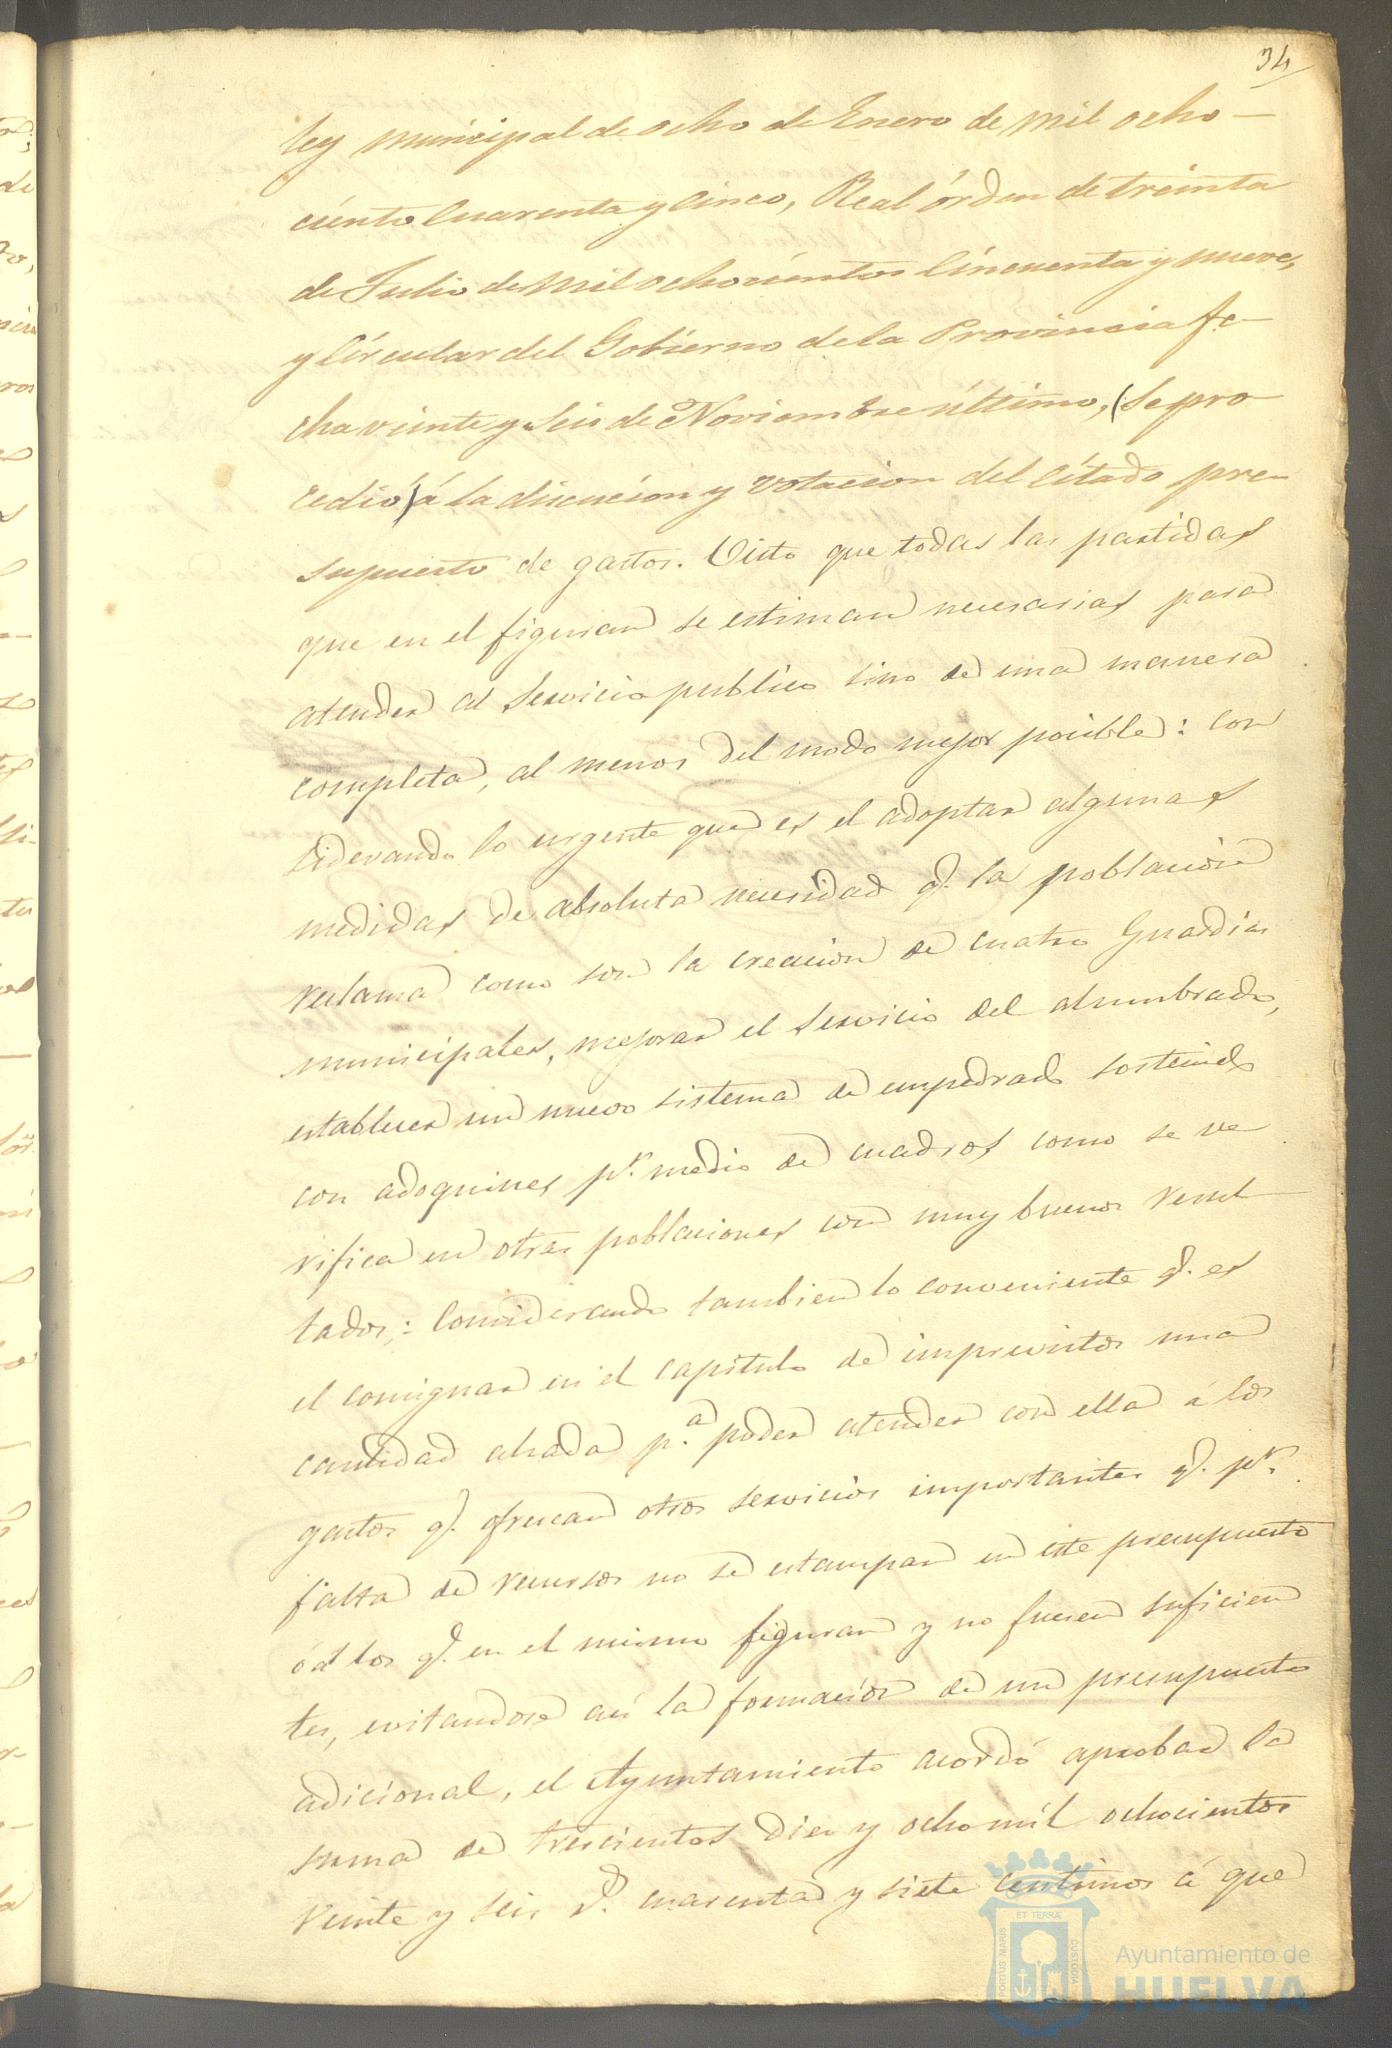 34
ley municipal de ocho de Enero de mil ocho-
ciento cuarenta y cinco, Real órden de treinta
de Julio de mil ochocientos cincuenta y nueve,
y Circular del Gobierno de la Provincia fe-
cha veinte y seis de Noviembre último, (se pro-
cedió) á la discucion y votacion del citado pre-
supuesto de gastos. Visto que todas las partidas
que en el figuran se estiman necesarias para
atender al servicio publico sino de una manera
completa, al menos del modo mejor posible: con
siderando lo urgente que es el adoptar algunas
medidas de absoluta necesidad q.e la poblacion
reclama como son la creacion de cuatro Guardias
municipales, mejorar el servicio del alumbrado,
establecer un nuevo sistema de empedrado sostenido
con adoquines p.r medio de cuadros como se ve
rifica en otras poblaciones con muy buenos resul
tados,: Considerando tambien lo conveniente q.e es
el consignar en el capitulo de imprevistos una
cantidad alzada p.a poder atender con ella á los
gastos q.e ofrescan otros servicios importantes q.e p.r
falta de recursos no se estampan en este presupuesto
ó á los q.e en el mismo figuran y no fueren suficien
tes, evitandose asi la formacion de un presupuesto
adicional, el Ayuntamiento acordó aprobar la
suma de trescientos diez y ocho mil ochocientos
veinte y seis r.s cuarenta y siete centimos á que
PORTUS MARIS ET TERRAE CUSTODIA
Ayuntamiento de
HUELVA